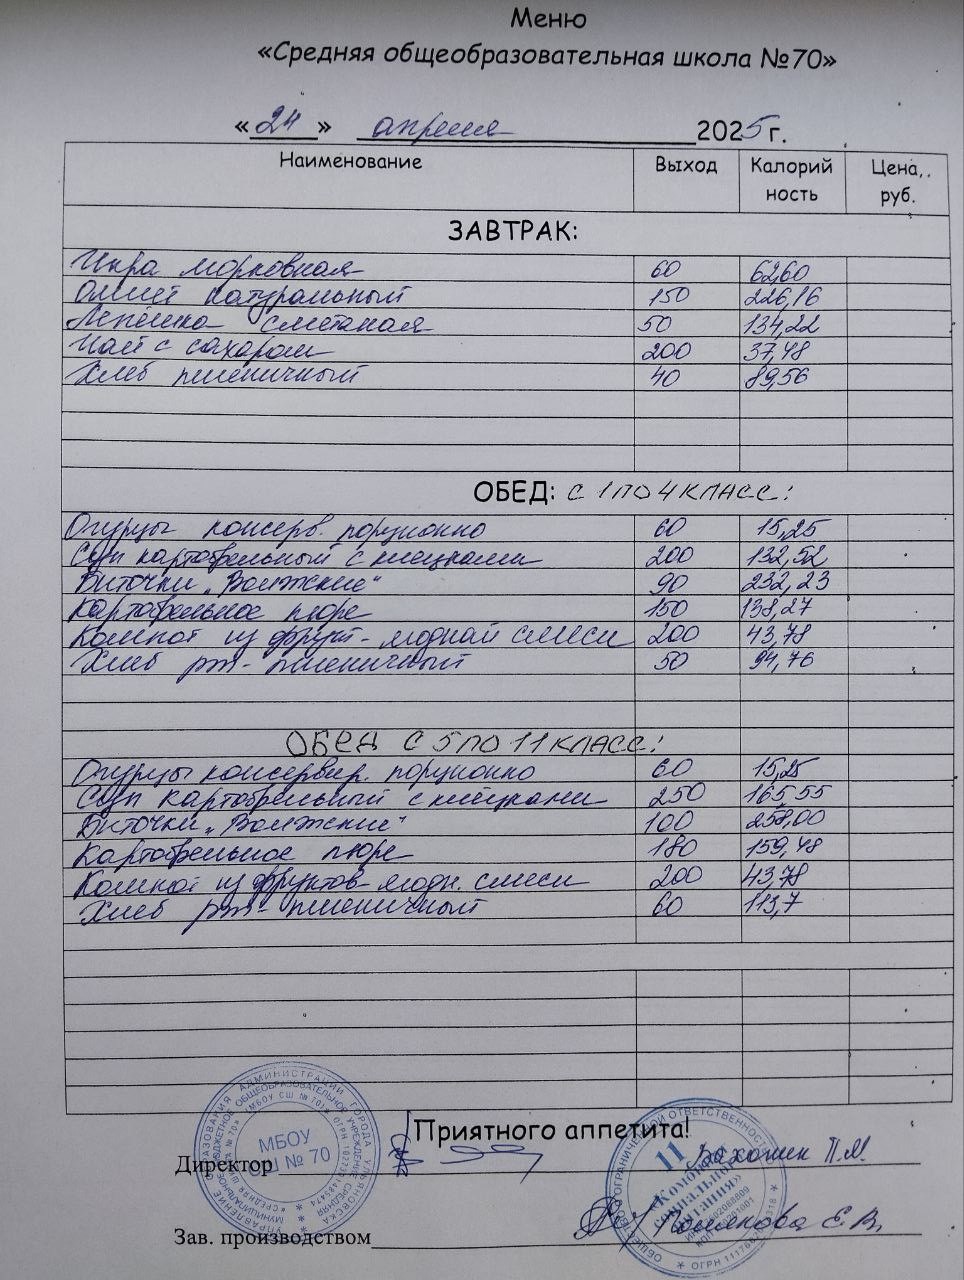 Меню
«Средняя общеобразовательная школа №70»
«24» апреля 2025 г.
Наименование Выход Калорий Цена,
ность руб.
ЗАВТРАК:
Икра морковная 60 62,60
Омлет натуральный 150 226,16
Лепешка сметаная 50 134,22
Чай с сахаром 200 37,48
Хлеб пшеничный 40 89,56
ОБЕД: С 1 ПО 4 КЛАСС:
Огурцы консерв. порционно 60 15,25
Суп картофельный с клецками 200 132,52
Биточки „Волжские" 90 232,23
Картофельное пюре 150 138,27
Компот из фрукт-ягодной смеси 200 43,78
Хлеб рж-пшеничный 50 94,76
ОБЕД С 5 ПО 11 КЛАСС:
Огурцы консервир. порционно 60 15,25
Суп картофельный с клецками 250 165,55
Биточки „Волжские" 100 258,00
Картофельное пюре 180 159,48
Компот из фруктов-ягодн. смеси 200 43,78
Хлеб рж-пшеничный 60 113,7
Приятного аппетита!
МБОУ
СШ № 70
Директор П.М.
11
«Комбинат
социального
питания»
Зав. производством Е.В.